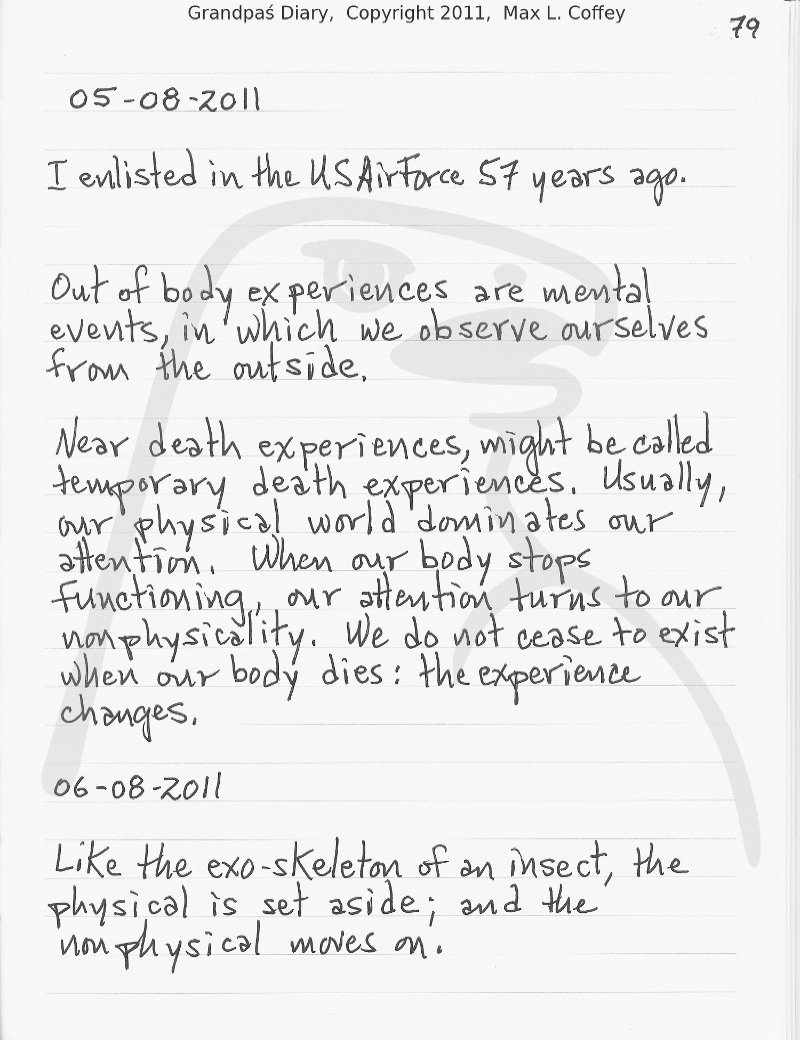 Grandpaś Diary, Copyright 2011, Max L. Coffey
79
05-08-2011
I enlisted in the US AirForce 57 years ago.
Out of body experiences are mental
events, in which we observe ourselves
from the outside.
Near death experiences, might be called
temporary death experiences. Usually,
our physical world dominates our
attention. When our body stops
functioning, our attention turns to our
nonphysicality. We do not cease to exist
when our body dies: the experience
changes.
06-08-2011
Like the exo-skeleton of an insect, the
physical is set aside; and the
nonphysical moves on.